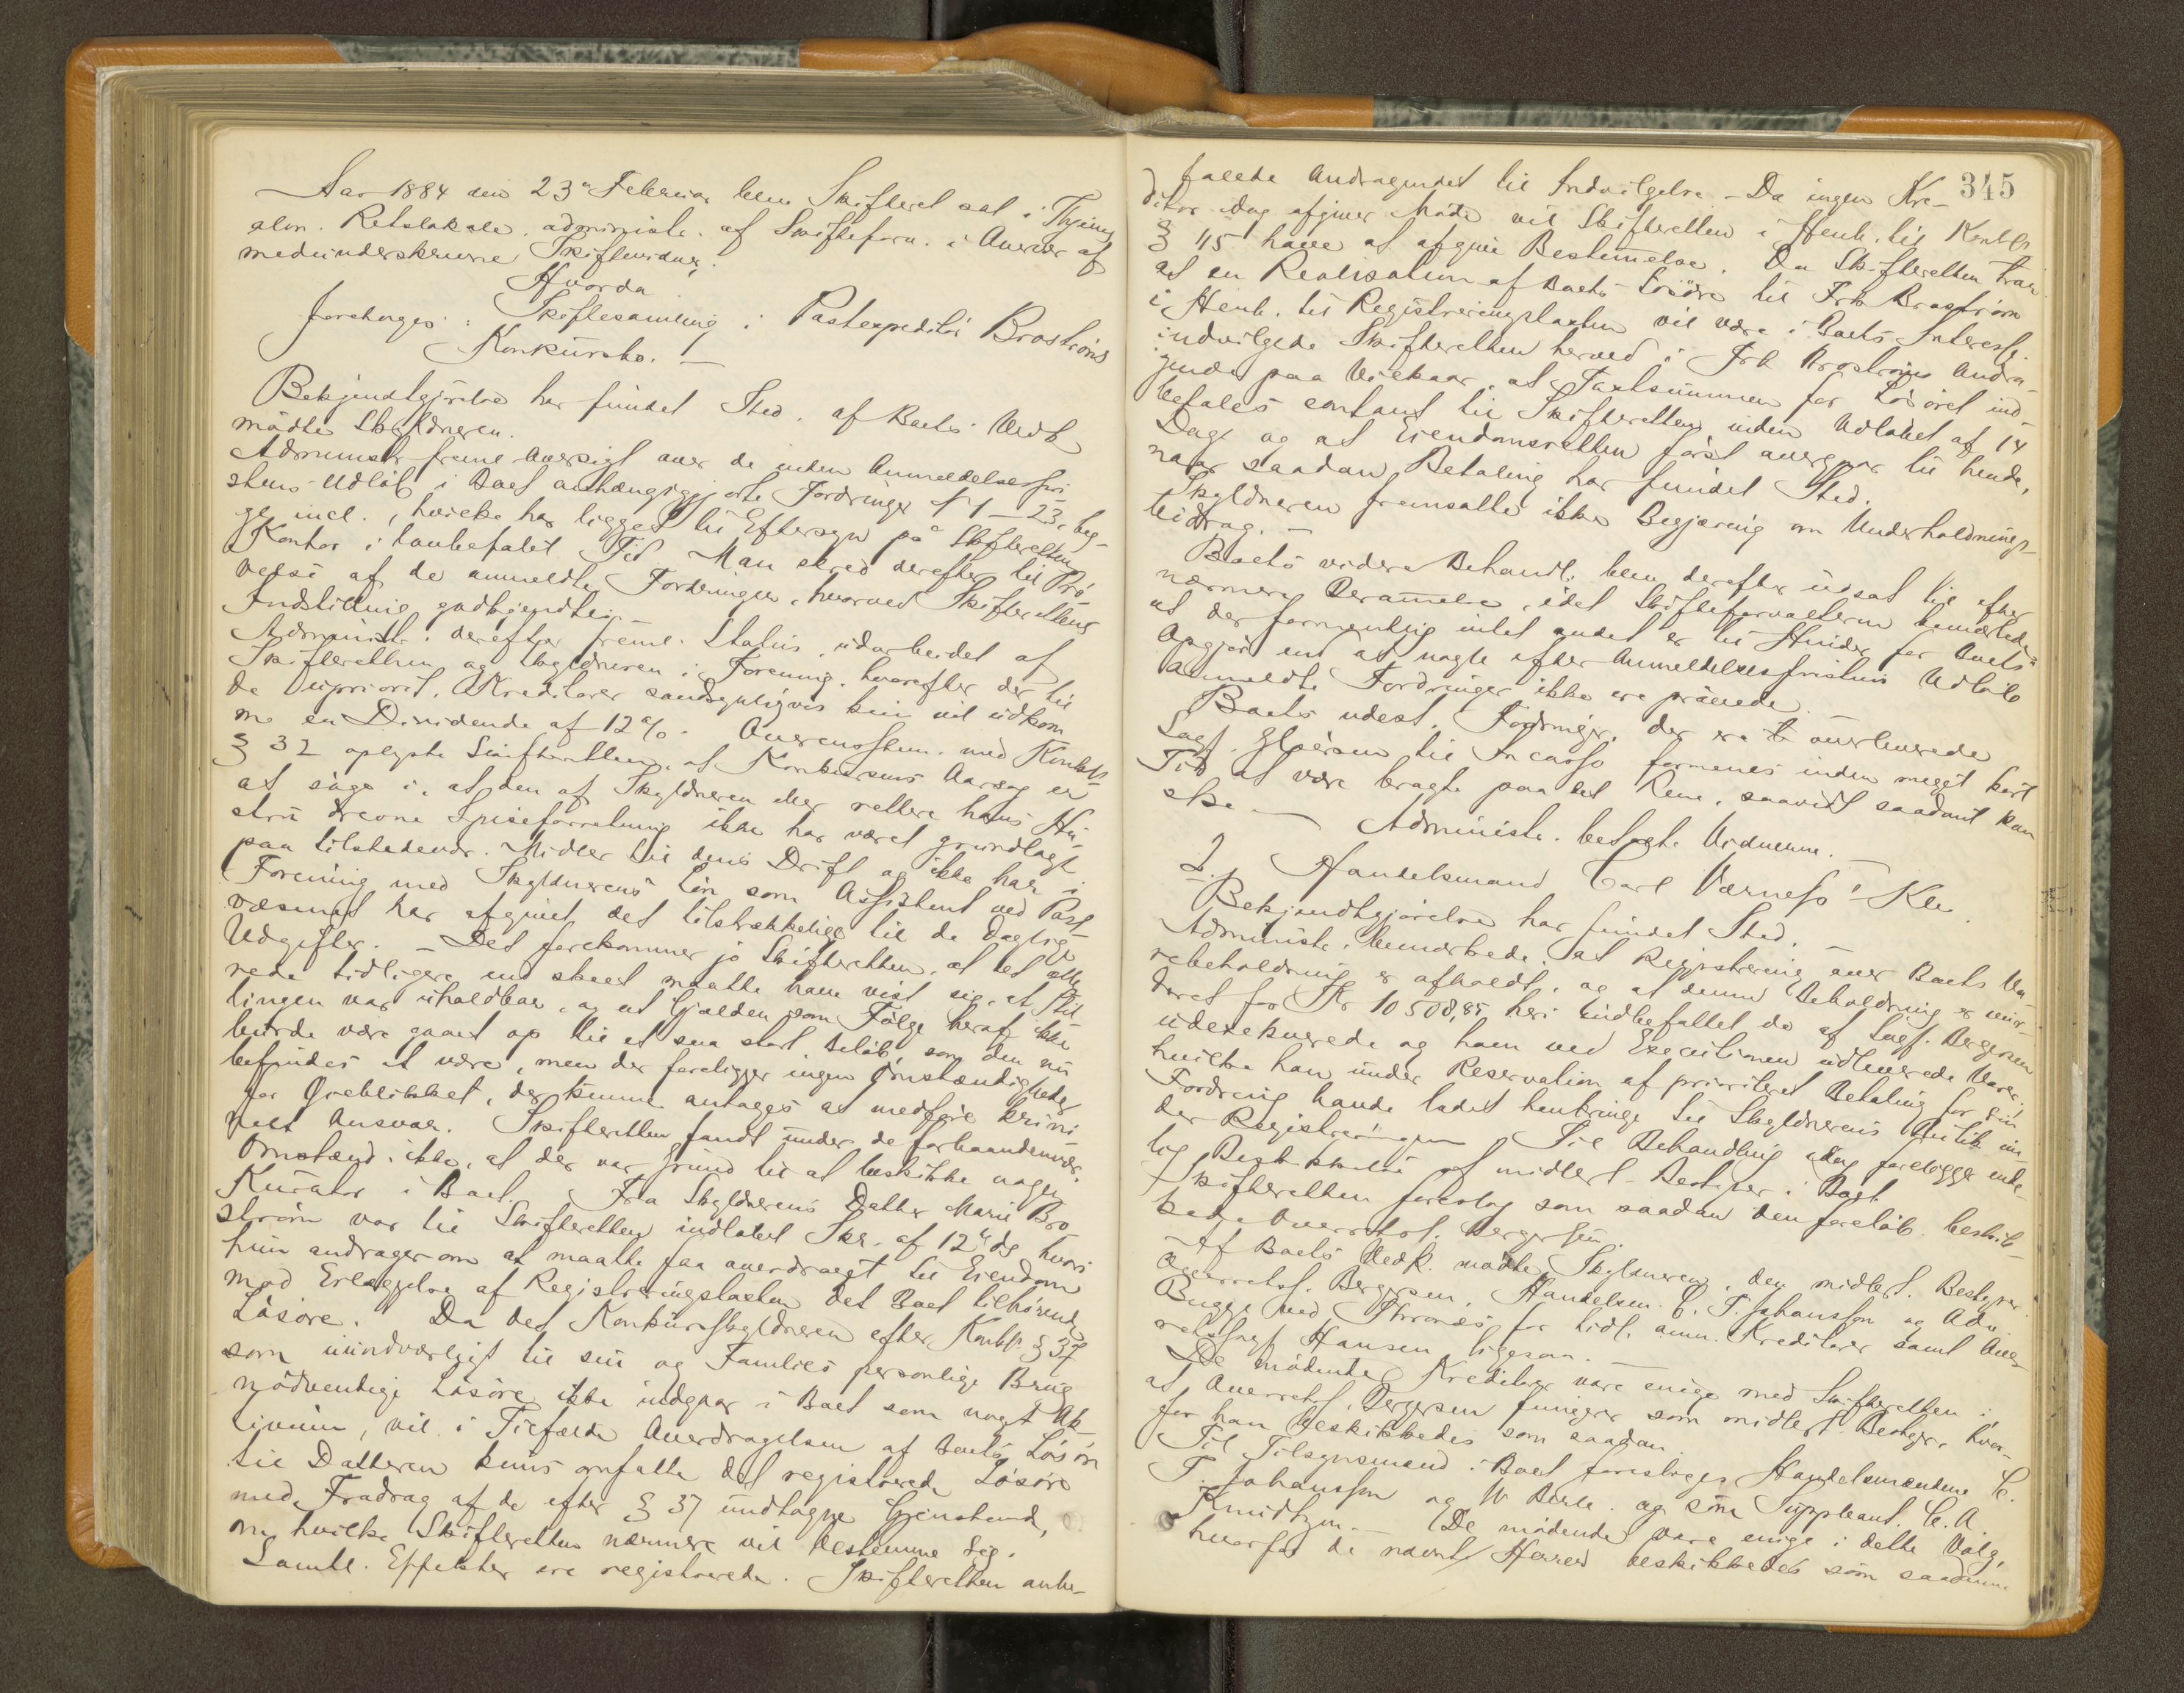 Aar 1884 den 23de Februar blev Skifteret sat i Thjems
alm. Retslokale, administr. af Skifteforv. i Overvær af
medunderskrevne Skiftevidner.
Hvorda
foretoges: Skiftesamling i Postexpeditør Brostrøms
Konkursbo. —
Bekjendtgjørelse har fundet Sted. af Boets Vedk.
mødte Skyldneren.
Administr. freml. Oversigt over de inden Anmeldelsesfri-
stens Udløb i Boet anhængiggjorte Fordringer 1–23, beg-
ge incl., hvilke har ligget til Eftersyn på Skifterettens
Kontor i lovbefalet Tid. Man skred derefter til Prø-
velse af de anmeldte Fordringer, hvorved Skifterettens
Indstilling godkjendtes. —
Administr. derefter freml. Status, udarbeidet af
Skifteretten og Skyldneren i Forening, hvorefter der til
de upriorit. Kreditorer sandsynligvis kun vil udkom-
me en Dividende af 12%. Overensstem. med Konkl.
§ 32 oplyste Skifteretten, at Konkursens Aarsag er
at søge i, at den af Skyldneren eller rettere hans Hu-
stru drevne Spiseforretning ikke har været grundlagt
paa tilstedevær. Midler til dens Drift og ikke har i
Forening med Skyldnerens Løn som Assistent ved Post-
væsenet har afgivet det tilstrækkelige til de daglige
Udgifter. — Det forekommer jo Skifteretten, at det alle-
rede tidligere end skeet maatte have vist sig, at Stil-
lingen var uholdbar, og at Gjælden som Følge heraf ikke
burde være gaaet op til et saa stort Beløb, som den nu
befindes at være, men der foreligger ingen Omstændigheder
for Øieblikket, der kunne antages at medføre krimi-
nelt Ansvar. Skifteretten fandt under de forhaandenvær.
Omstænd. ikke, at der var Grund til at beskikke nogen
Kurator i Boet. Fra Skyldnerens Datter Marie Bro-
strøm var til Skifteretten indløbet Skr. af 12te ds., hvori
hun andrager om at maatte faa overdraget til Eiendom
mod Erlæggelse af Registreringstaxten det Boet tilhørende
Løsøre. Da det Konkursskyldneren efter Konkl. § 37
som uundværligt til sin og Families personlige Brug
nødvendige Løsøre ikke indgaar i Boet som noget Ak-
tivum, vil i Tilfælde Overdragelsen af Boets Løsøre
til Datteren kuns omfatte det registrerede Løsøre
med Fradrag af de efter § 37 undtagne Gjenstand,
om hvilke Skifteretten nærmere vil bestemme sig.
Samtl. Effekter ere registrerede. Skifteretten anbe-
345
falede Andragendet til Indvilgelse. — Da ingen Kre-
ditor idag afgiver Møde vil Skifteretten i Henh. til Konkl.
§ 115 have at afgive Bestemmelse. Da Skifteretten tror
at en Realisation af Boets Løsøre til Frk Brostrøm
i Henh. til Registreringstaxten vil være i Boets Interesse
indvilgede Skifteretten herved i Frk Brostrøms Andra-
gende paa Vilkaar, at Taxtsummen for Løsøret ind-
betales contant til Skifteretten inden Udløbet af 14
Dage og at Eiendomsretten først overgaar til hende,
naar saadan Betaling har fundet Sted.
Skyldneren fremsatte ikke Begjæring om Underholdnings-
bidrag. —
Boets videre Behandl. blev derefter udsat til efter
nærmere Berammelse, idet Skifteforvalteren bemærkede
at der formentlig intet andet er til Hinder for Boets
Opgjør end at nogle efter Anmeldelsesfristens Udløb
anmeldte Fordringer ikke ere prøvede.
Boets udest. Fordringer, der ere overleverede
Sagf. til Incasso formenes inden meget kort
Tid at være bragte paa det Rene, saavidt saadant kan
ske. — Administr. betegte Vidnerne. —
2. Handelsmand Carl Værness' Kbo.
Bekjendtgjørelse har fundet Sted. —
Administr. bemærkede, at Registrering over Boets Va-
rebeholdning er afholdt, og at denne Beholdning er vur-
deret for Kr 10508,85, heri indbefattet de af Sagf. Bergersen
udexekverede og ham ved Executionen udleverede Varer,
hvilke han under Reservation af prioriteret Betaling for sin
Fordring havde ladet henbringe til Skyldnerens Butik un-
der Registreringen. Til Behandling idag foreligger ende-
lig Beskikkelse af midlert. Bestyrer i Boet.
Skifteretten foreslog som saadan den foreløb. beskik-
kede Overretssf. Bergersen.
Af Boets Vedk. mødte Skyldneren, den midlert. Bestyrer
Overretssf. Bergersen, Handelsm. C. T. Johanssen og Adv.
Bugge ved for tidl. anm. Kreditorer samt Over-
retssagf Hansen ligesaa. —
De mødende Kreditorer vare enige med Skifteretten i,
at Overretssf. Bergersen fungerer som midlert. Bestyrer, hvor-
for han beskikkedes som saadan.
Til Tilsynsmænd i Boet foresloges Handelsmændene C.
T. Johanssen og W. og som Suppleant C. A.
Knudtzon. — De mødende vare enige i dette Valg,
hvorfor de nævnte Herrer beskikkedes som saadanne